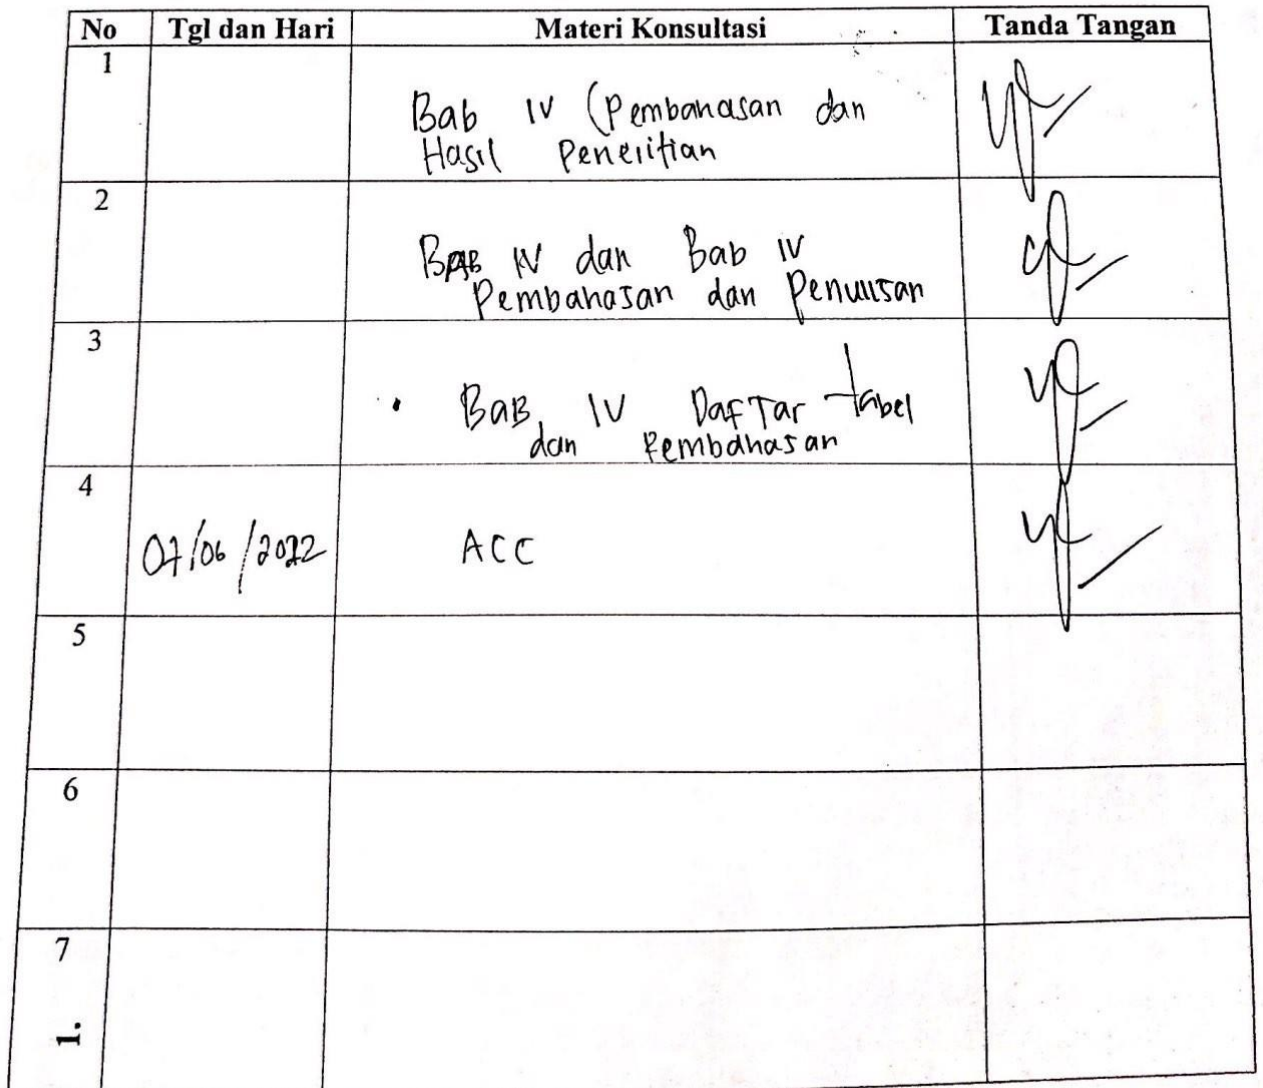 No Tgl dan Hari Materi Konsultasi Tanda Tangan
1
Bab IV (Pembahasan dan
Hasil Penelitian
2
BAB IV dan Bab IV
Pembahasan dan Penulisan
3
BaB IV DafTar tabel
dan Pembahasan
4
07/06/2022 ACC
5
6
7
1.